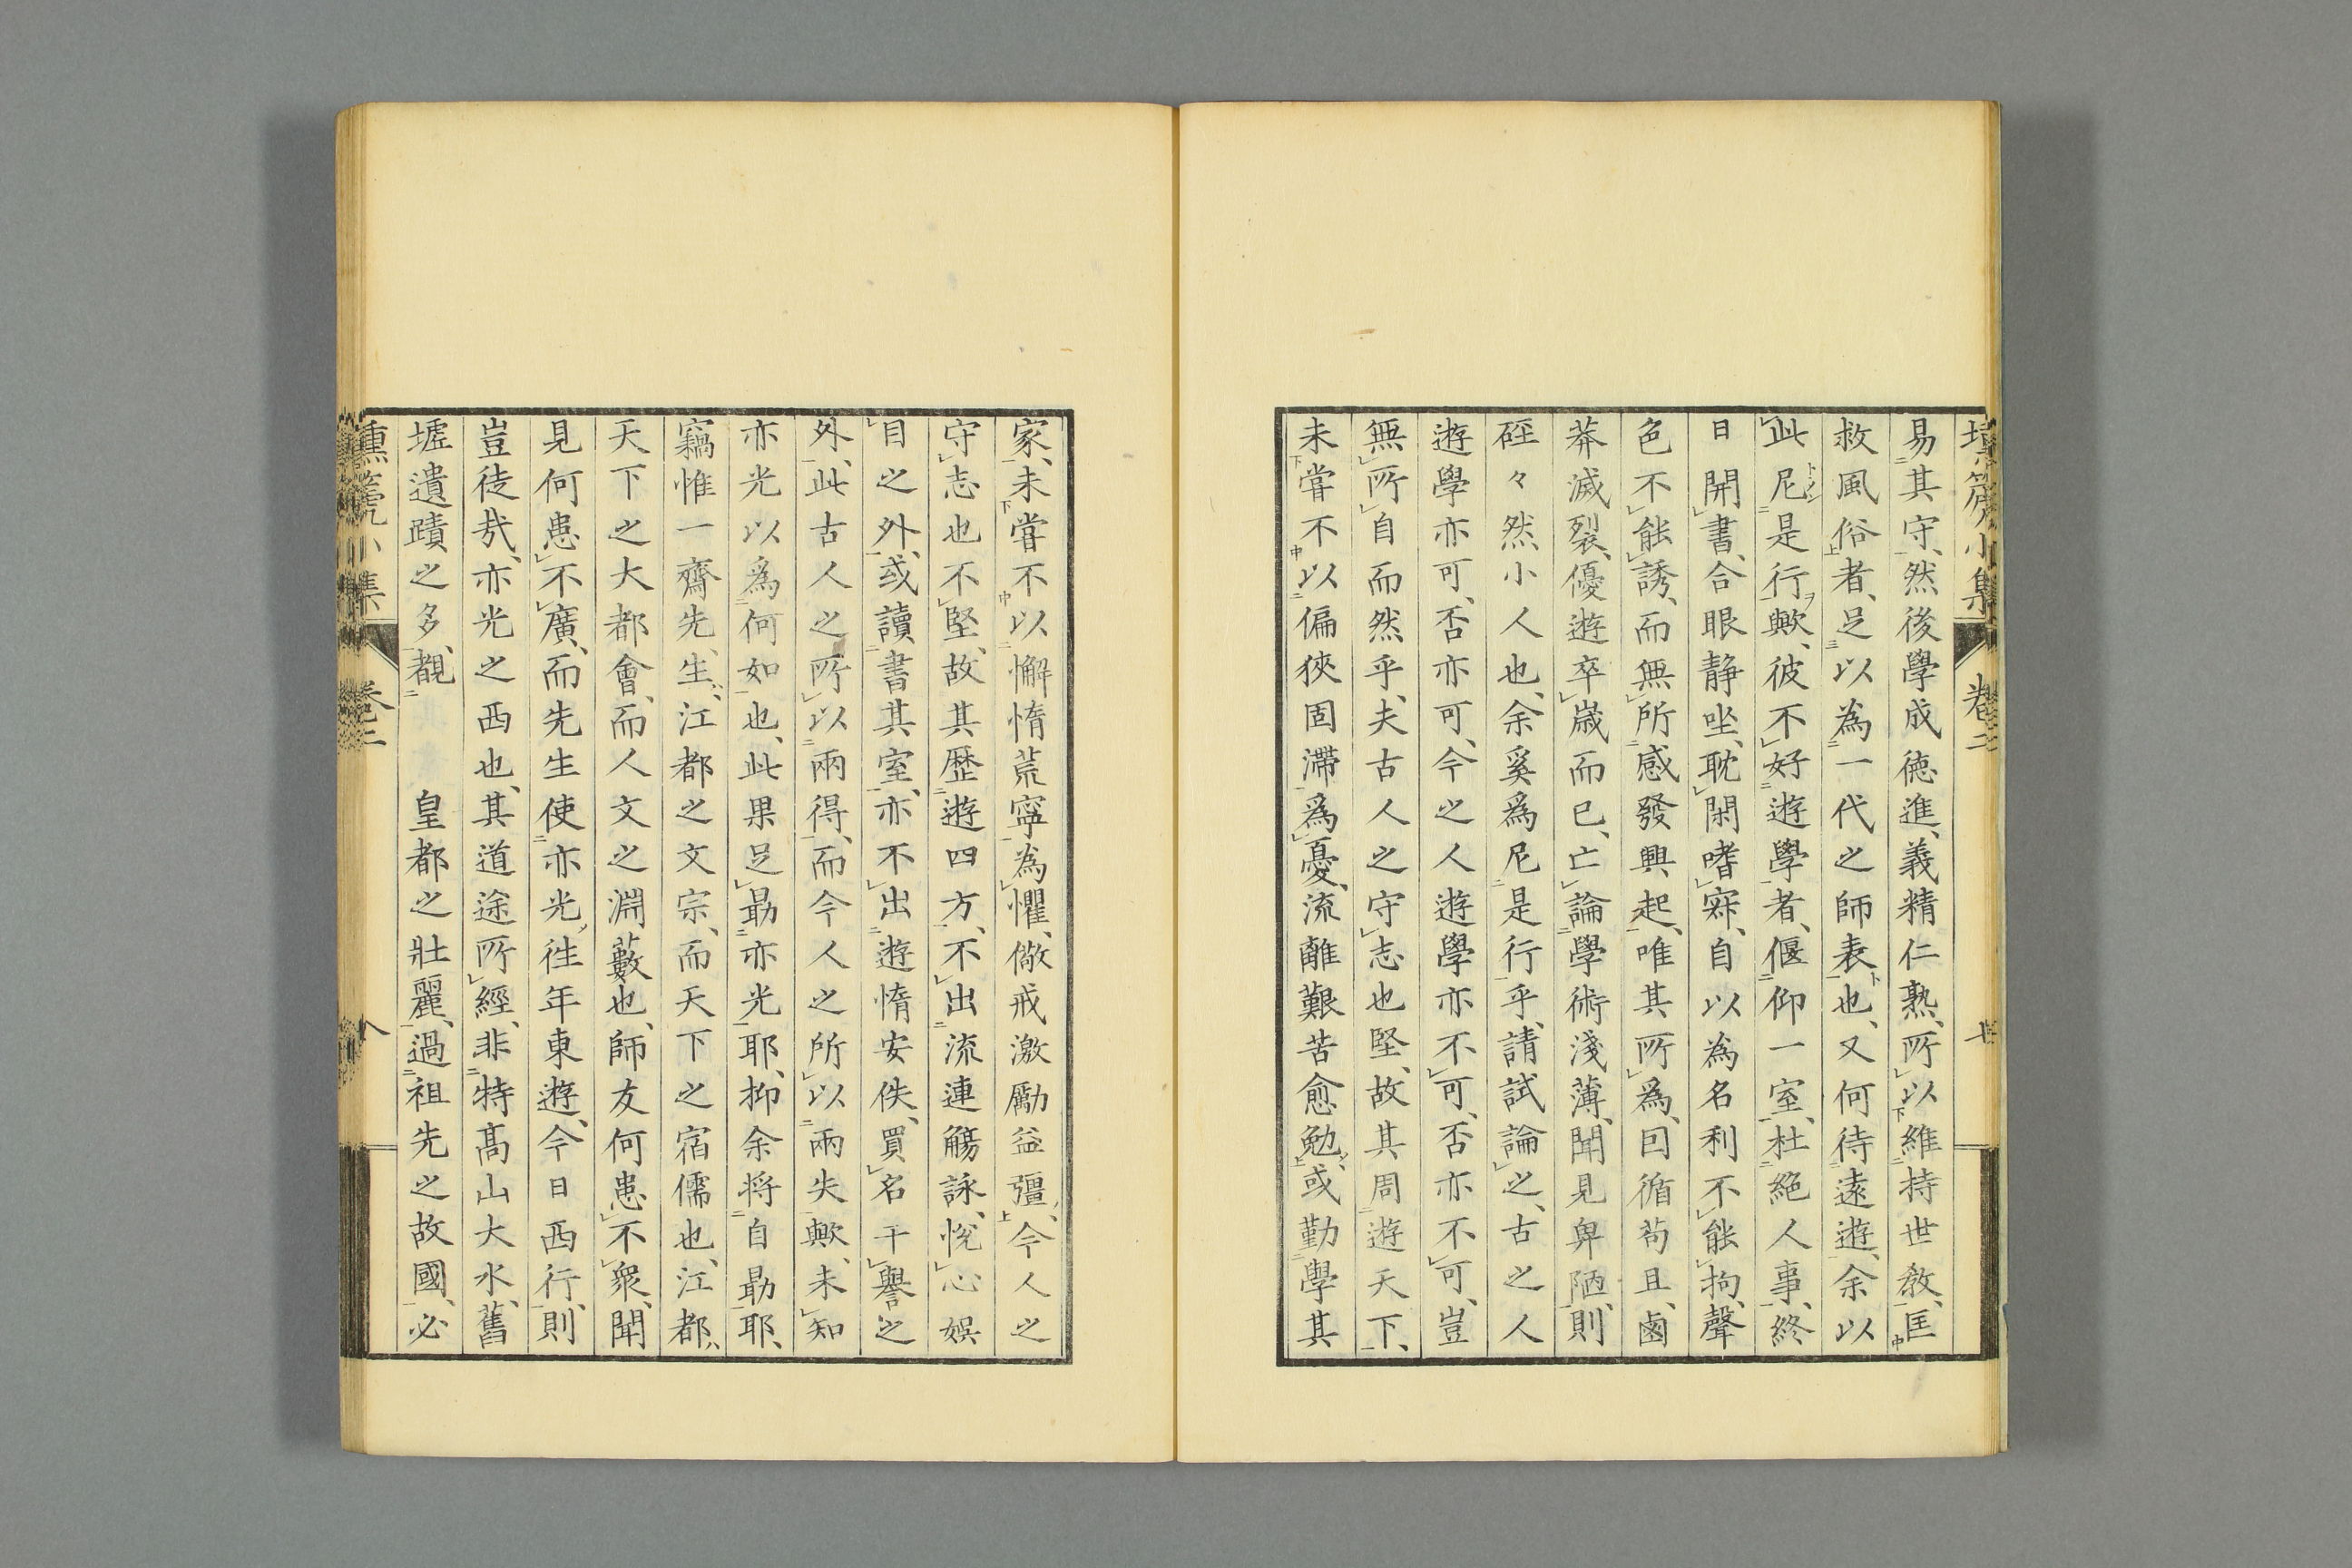 易其守、然後學成徳進、義精仁熟、所以維持世教、匡
救風俗者、足以為一代之師表也、又何待遠遊、余以
此尼是行歟、彼不好遊學者、偃仰一室、杜絶人事、終
日開書、合眼静坐、耽閑嗜寂、自以為名利不能拘、聲
色不能誘、而無所感發興起、唯其所爲、因循苟且、鹵
莽滅裂、優遊卒歳而已、亡論學術淺薄、聞見卑陋、則
硜々然小人也、余奚爲尼是行乎、請試論之、古之人
遊學亦可、否亦可、今之人遊學亦不可、否亦不可、豈
無所自而然乎、夫古人之守志也堅、故其周遊天下、
未甞不以偏狹固滯爲憂、流離艱苦愈勉、或勤學其
家、未甞不以懈惰荒寧為懼、儆戒激勵益彊、今人之
守志也不堅、故其歴遊四方、不出流連觴詠、悅心娯
目之外、或讀書其室、亦不出遊惰安佚、買名干譽之
外、此古人之所以兩得、而今人之所以兩失歟、未知
亦光以爲何如也、此果足勗亦光耶、抑余将自勗耶、
竊惟一齋先生、江都之文宗、而天下之宿儒也、江都、
天下之大都會、而人文之淵藪也、師友何患不衆、聞
見何患不廣、而先生使亦光往年東遊、今日西行、則
豈徒哉、亦光之西也、其道途所經、非特髙山大水、舊
墟遺蹟之多、覩皇都之壯麗、過祖先之故國、必